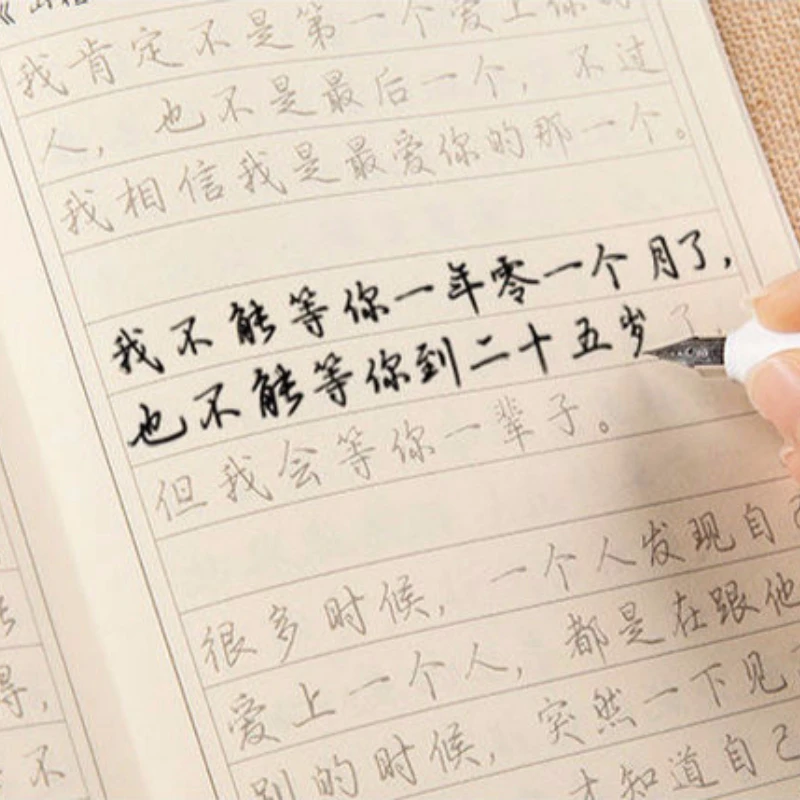 我肯定不是第一个爱上你的
人，也不是最后一个，不过
我相信我是最爱你的那一个。
我不能等你一年零一个月了，
也不能等你到二十五岁了，
但我会等你一辈子。
很多时候，一个人发现自己
爱上一个人，都是在跟他
别的时候，突然一下见
才知道自己
得，
不